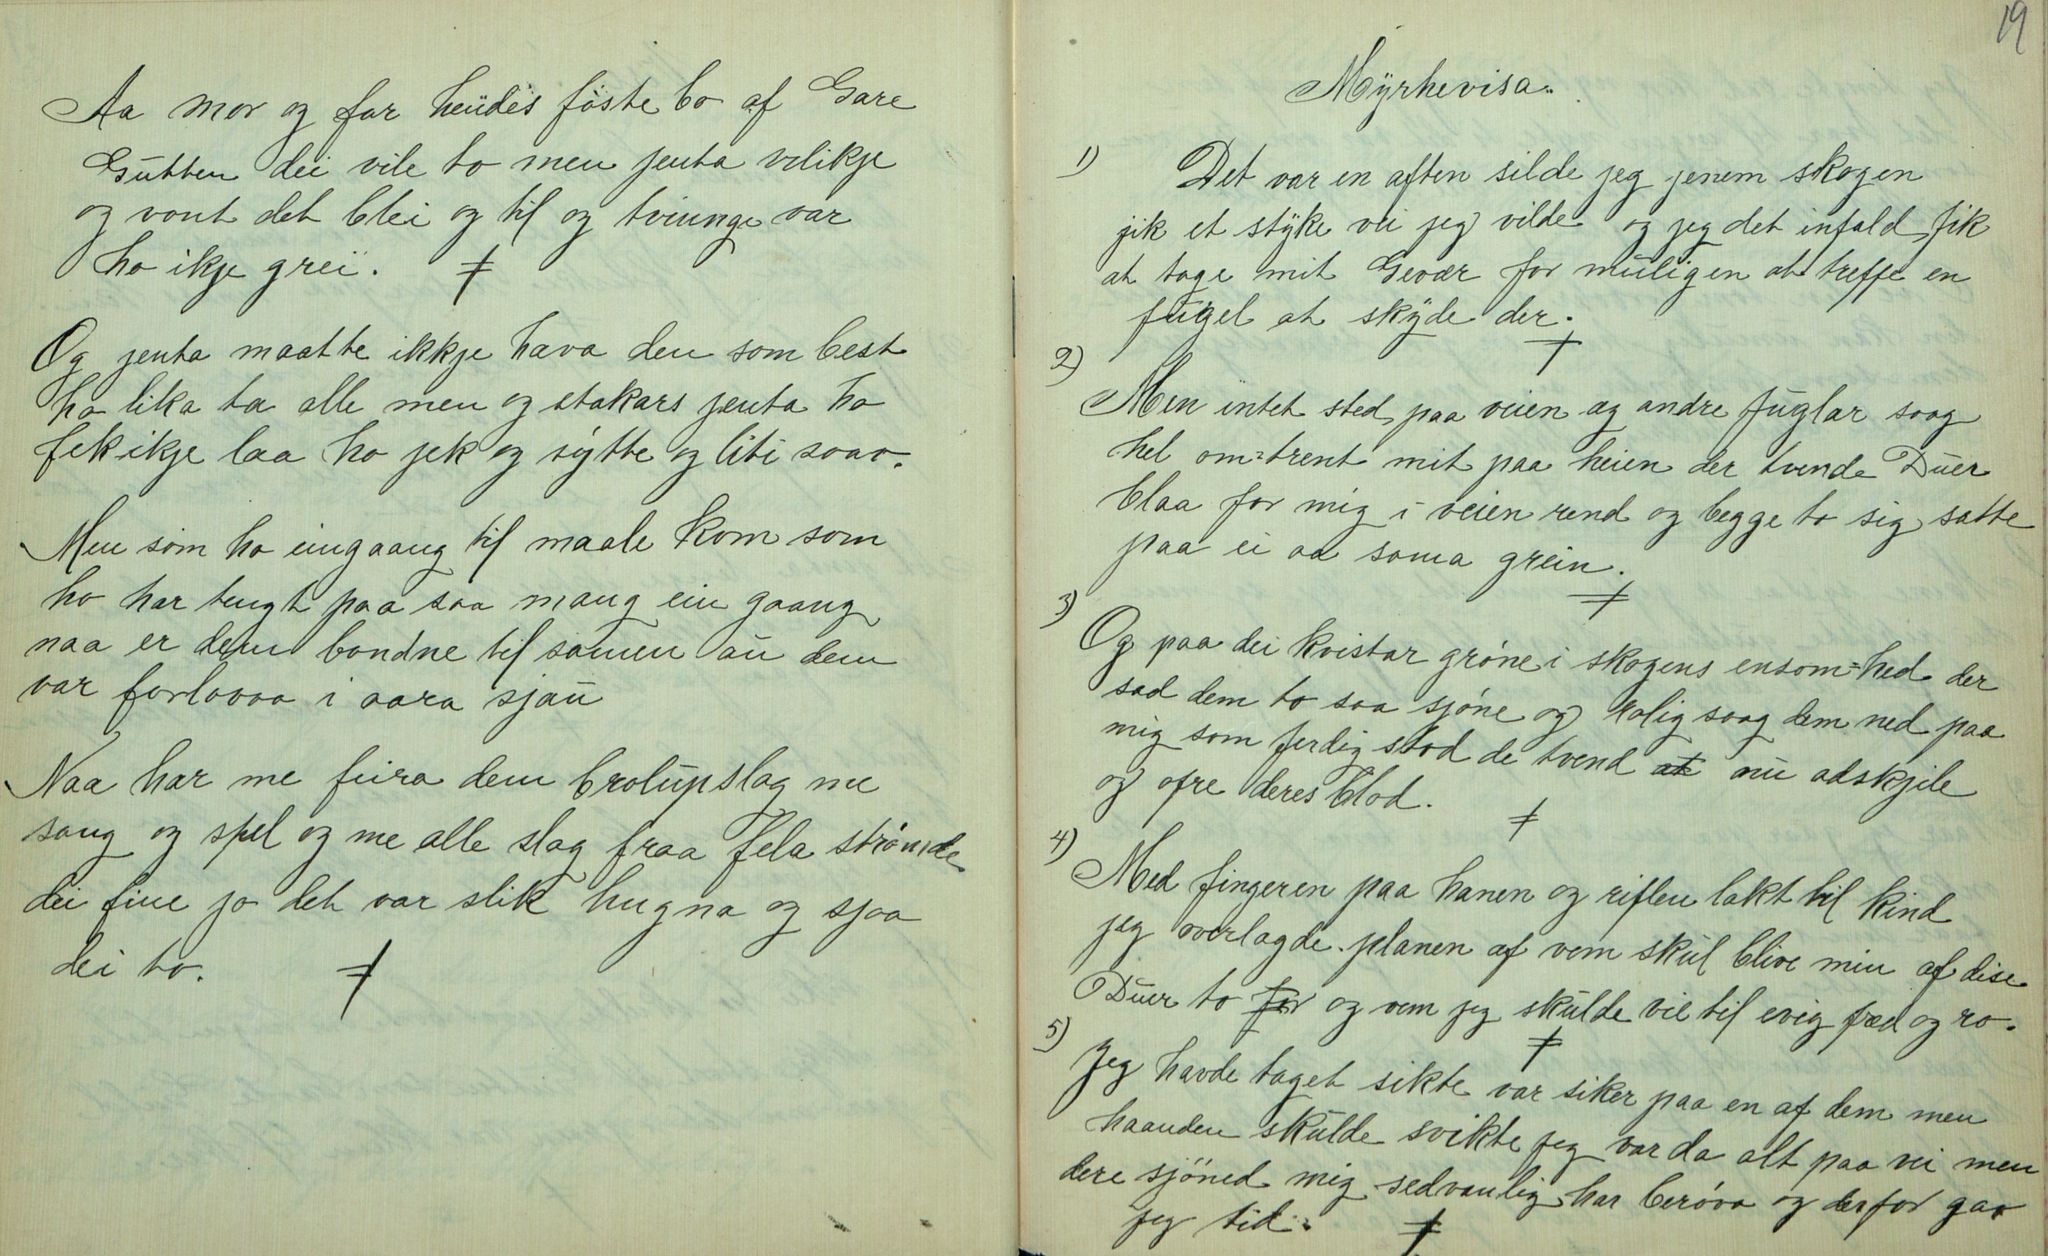 Aa mor og far heudes föste bo af Gare
Gutten dei vile to men jenta vilikje
og vont det blei og til og tvinnge var
ho ikje grei.
Og jenta maatte ikkje hava den som best
ho lika ta alle men og stakars jenta ho
fek ikje laa ho jek og sytte og liti soav.
Men som ho eingaang til maale kom som
ho har tengt paa saa mang ein gaang
naa er dem bondne til samen au dem
var forlovaa i aara sjau
Naa har me feira dem brolupslag me
sang og spel og me alle slag fraa Fela strømde
dei fine jo det var slik hugna og sjaa
dei to.
19
Myrhevisa.
1) Det var en aften silde jeg jenem skogen
jik et styke vei jeg vilde og jeg det infald fik
at tage mit Gevær for muligen at treffe en
fugel at skyde der.
2) Men intet sted paa veien ag andre fuglar saag
hel om-trent mit paa heien der tvende Duer
blaa for mig i veien rend og begge to sig satte
paa ei aa sama grein.
3) Og paa dei kvistar grøne i skogens ensom-hed der
sad dem to saa sjøne og rolig saag dem ned paa
mig som ferdig stod de tvend at nu adskjile
og ofre deres blod.
4) Med fingeren paa hanen og riflen lakt til kind
jeg overlagde planen af vem skul blive min af dise
Duer to for og vem jeg skulde vie til evig fred og ro.
5) Jeg havde taget sikte var siker paa en af dem men
haanden skulde svikte jeg var da alt paa vei men
dere sjöned mig sedvanlig har berøva og derfor gav
jeg tid.